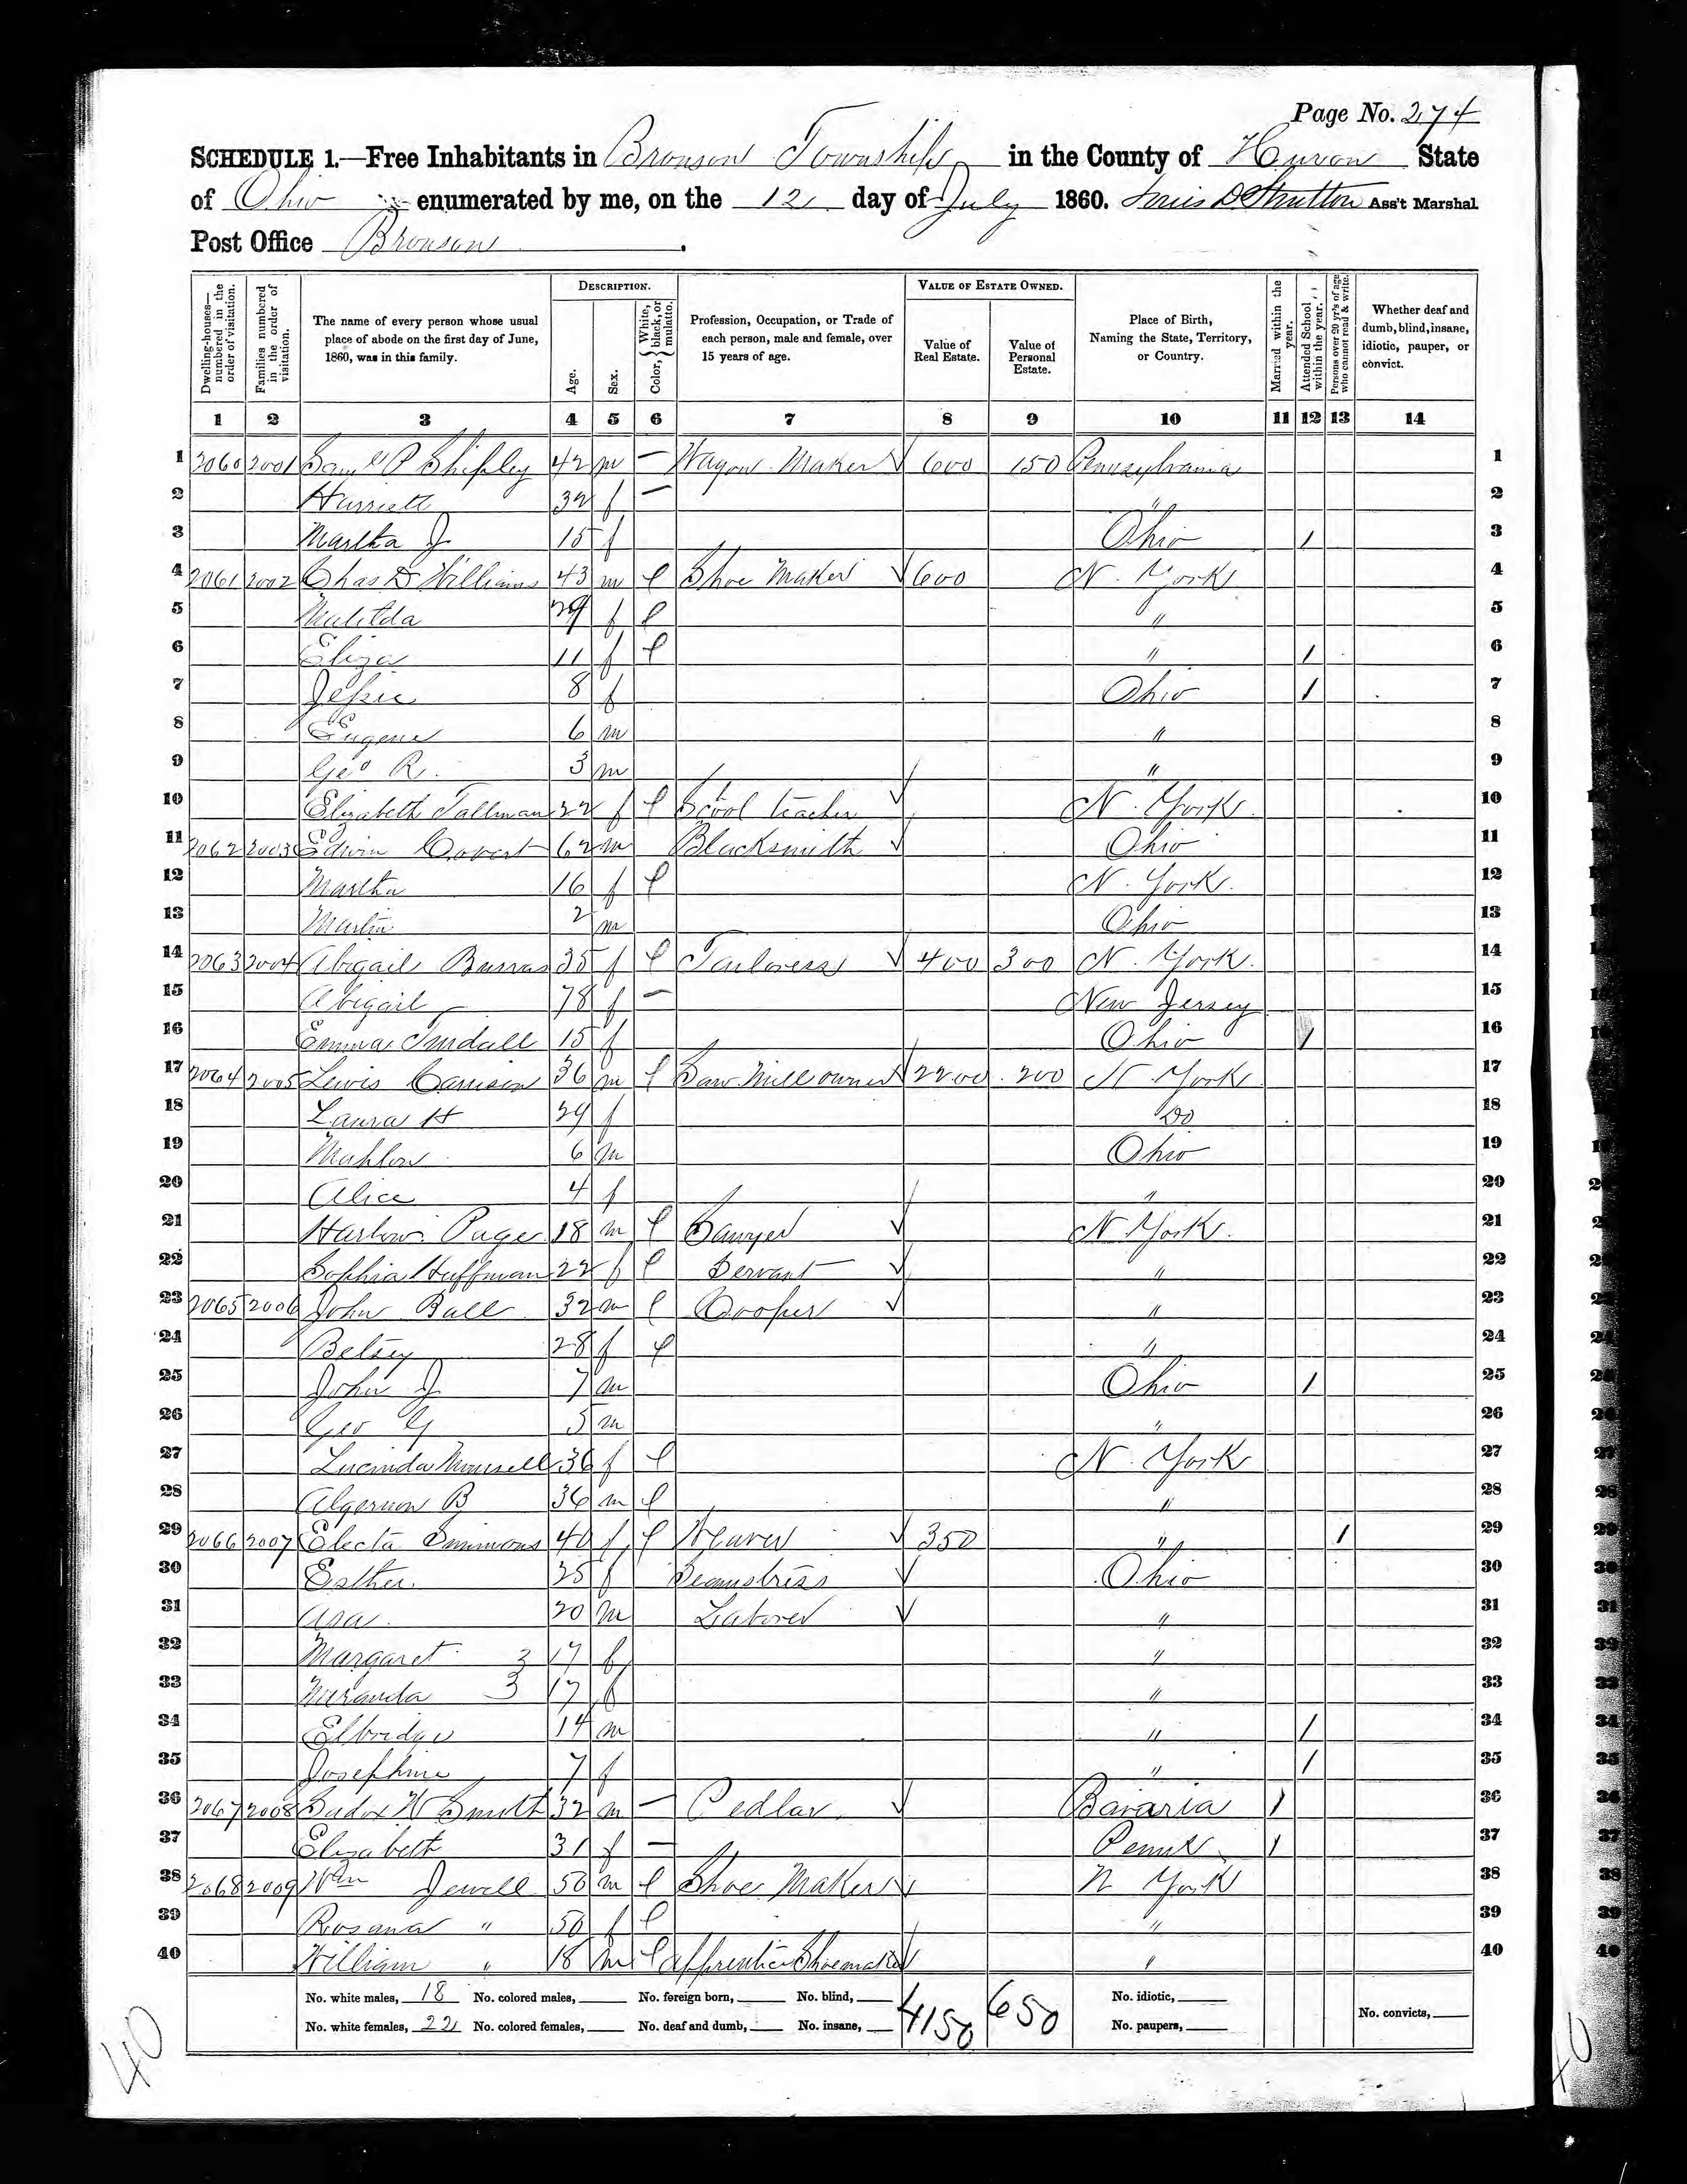 Page No. 274
SCHEDULE 1.—Free Inhabitants in Bronson Township in the County of Huron State
of Ohio enumerated by me, on the 12 day of July 1860. Ass't Marshal
Post Office Bronson.
Dwelling-houses—numbered in the order of visitation.
Families numbered in the order of visitation.
The name of every person whose usual place of abode on the first day of June, 1860, was in this family.
DESCRIPTION.
Age.
Sex.
Color, { White, black, or mulatto.
Profession, Occupation, or Trade of each person, male and female, over 15 years of age.
VALUE OF ESTATE OWNED.
Value of Real Estate.
Value of Personal Estate.
Place of Birth, Naming the State, Territory, or Country.
Married within the year.
Attended School within the year.
Persons over 20 y'rs of age who cannot read & write.
Whether deaf and dumb, blind, insane, idiotic, pauper, or convict.
1 2 3 4 5 6 7 8 9 10 11 12 13 14
1 2060 2001 Saml P Shipley 42 m — Wagon Maker 600 150 Pennsylvania 1
2 Harriett 32 f — " 2
3 Martha J 15 f Ohio / 3
4 2061 2002 Chas D Williams 43 m Shoe Maker 600 N. York 4
5 Matilda f " 5
6 Eliza 11 f " / 6
7 Jessie 8 f Ohio / 7
8 Eugene 6 m " 8
9 Geo R. 3 m " 9
10 Elizabeth Tallman 22 f Scool teacher N. York 10
11 2062 2003 Edwin Covert 62 m Blacksmith Ohio 11
12 Martha 16 f N. York. 12
13 Martin 2 m Ohio 13
14 2063 2004 Abigail 35 f Tailoress 400 300 N. York. 14
15 Abigail 78 f — New Jersey 15
16 Emma 15 f Ohio / 16
17 2064 2005 Lewis 36 m Saw Mill owner 2200 200 N York 17
18 Laura H 29 f Do 18
19 Mahlon 6 m Ohio 19
20 Alice 4 f " 20
21 Harlow Page 18 m Sawyer N York. 21
22 Sophia Huffman 22 f Servant " 22
23 2065 2006 John Ball 32 m Cooper " 23
24 Betsey 28 f " 24
25 John J 7 m Ohio / 25
26 Geo G 5 m " 26
27 Lucinda 36 f N. York 27
28 Algernon B 36 m " 28
29 2066 2007 Electa 40 f Weaver 350 " / 29
30 Esther. 25 f Seamstriss Ohio 30
31 Asa 20 m Laborer " 31
32 Margaret 3 17 f " 32
33 Miranda 3 17 f " 33
34 Elbridge 14 m " / 34
35 Josephine 7 f " / 35
36 2067 2008 W Smith 32 m — Pedlar. Bavaria / 36
37 Elizabeth 31 f — / 37
38 2068 2009 Wm Jewell 50 m Shoe Maker N York 38
39 Rosana " 50 f " 39
40 William " 18 m apprentice Shoemaker " 40
No. white males, 18 No. colored males, No. foreign born, No. blind, 4150 650 No. idiotic,
No. white females, 22 No. colored females, No. deaf and dumb, No. insane, No. paupers, No. convicts,
40